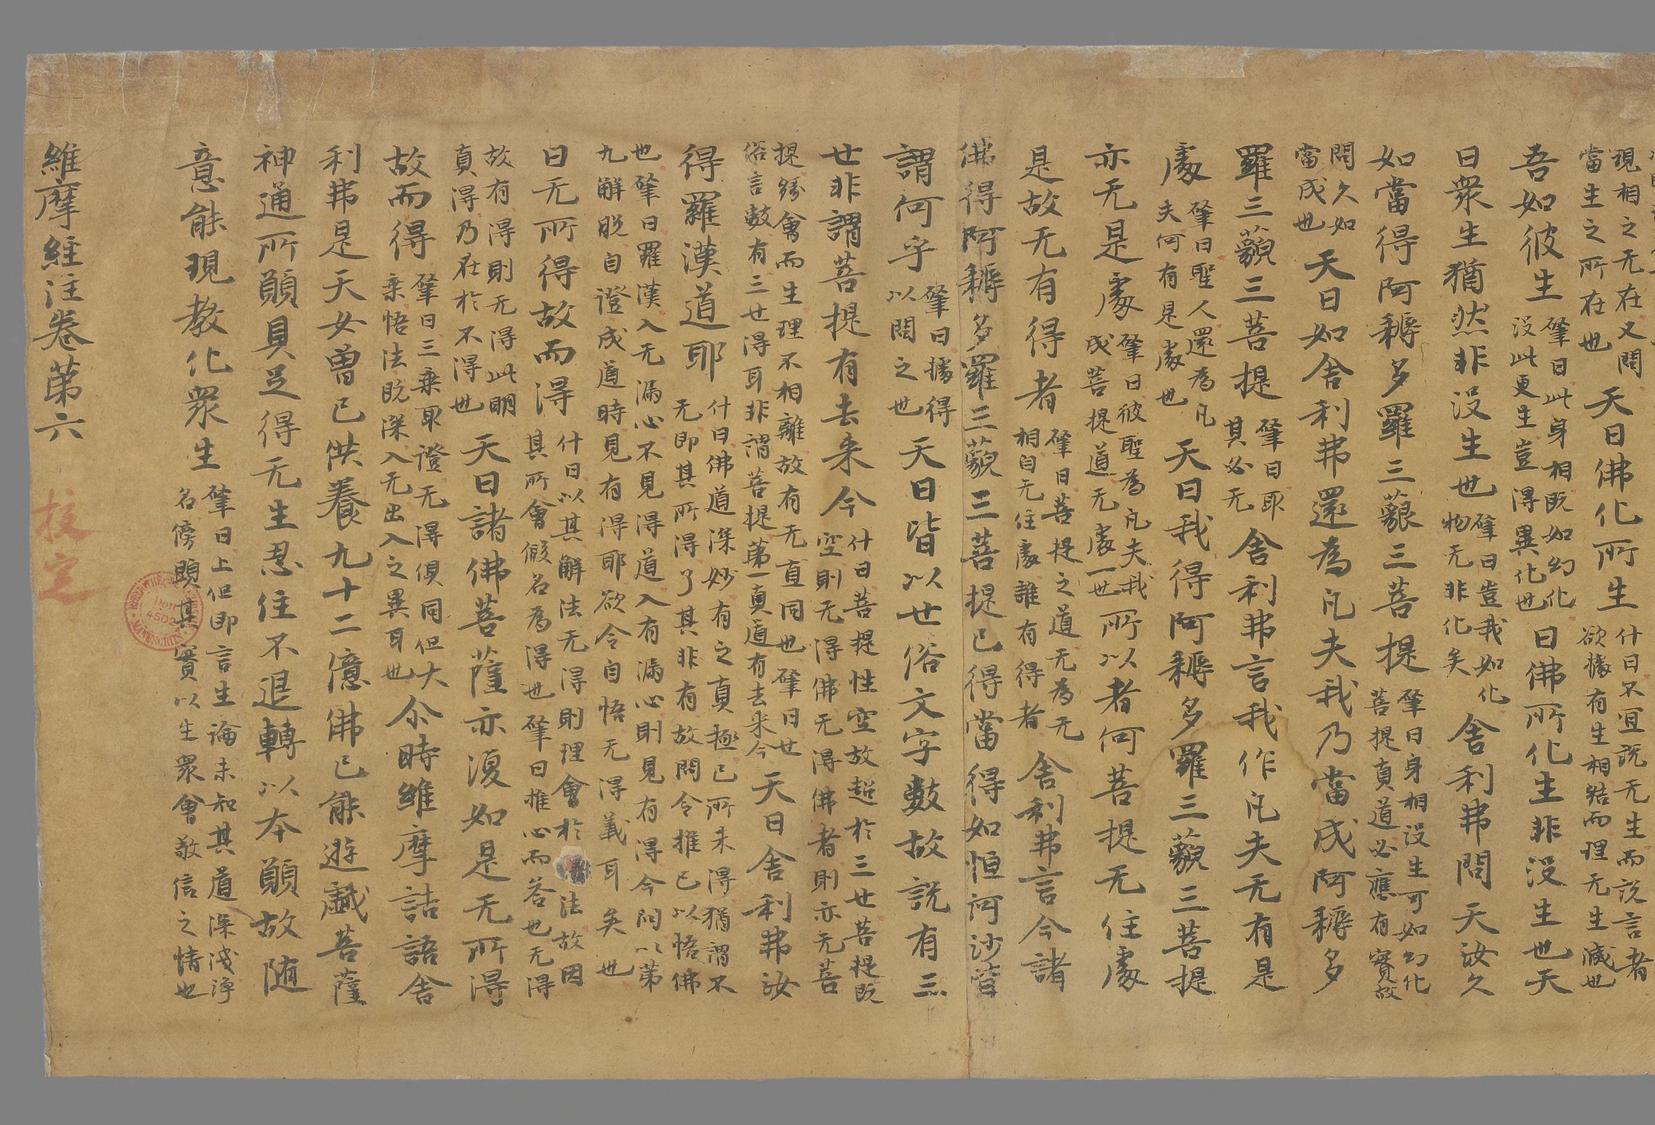 現相之无在又問
當生之所在也
天曰佛化所生
什曰不直説无生而説言者
欲據有生相結而理无生滅也
吾如彼生
肇曰此身相既如幻化
没此更生豈得異化也
曰佛所化生非没生也天
曰衆生猶然非没生也
肇曰豈我如化
物无非化矣
舍利弗問天汝久
如當得阿耨多羅三藐三菩提
肇曰身相没生可如幻化
菩提真道必應有實故
問久如
當成也
天曰如舍利弗還爲凡夫我乃當成阿耨多
羅三藐三菩提
肇曰取
其必无
舍利弗言我作凡夫无有是
處
肇曰聖人還爲凡
夫何有是處也
天曰我得阿耨多羅三藐三菩提
亦无是處
肇曰彼聖爲凡夫我
成菩提道无處一也
所以者何菩提无住處
是故无有得者
肇曰菩提之道无爲无
相自无住處誰有得者
舍利弗言今諸
佛得阿耨多羅三藐三菩提已得當得如恒河沙皆
謂何乎
肇曰據得
以問之也
天曰皆以世俗文字數故説有三
世非謂菩提有去来今
什曰菩提性空故超於三世菩提既
空則无得佛无得佛者則亦无菩
提緣會而生理不相離故有无直同也肇曰世
俗言數有三世得耳非謂菩提第一真道有去来今
天曰舍利弗汝
得羅漢道耶
什曰佛道深妙有之真極已所未得猶謂不
无即其所得了其非有故問令推已以悟佛
也肇曰羅漢入无漏心不見得道入有漏心則見有得今問以第
九解脱自證成道時見有得耶欲令自悟无得義耳矣也
曰无所得故而得
什曰以其解法无得則理會於法故因
其所會假名爲得也肇曰推心而答也无得
故有得則无得此明
真得乃在於不得也
天曰諸佛菩薩亦復如是无所得
故而得
肇曰三乘取證无得俱同但大
乘悟法既深入无出入之異耳也
尒時維摩詰語舍
利弗是天女曾已供養九十二億佛已能遊戲菩薩
神通所願具足得无生忍住不退轉以本願故随
意能現教化衆生
肇曰上但即言生論未知其道深淺淨
名傍顯其實以生衆會敬信之情也
維摩經注卷第六
校定